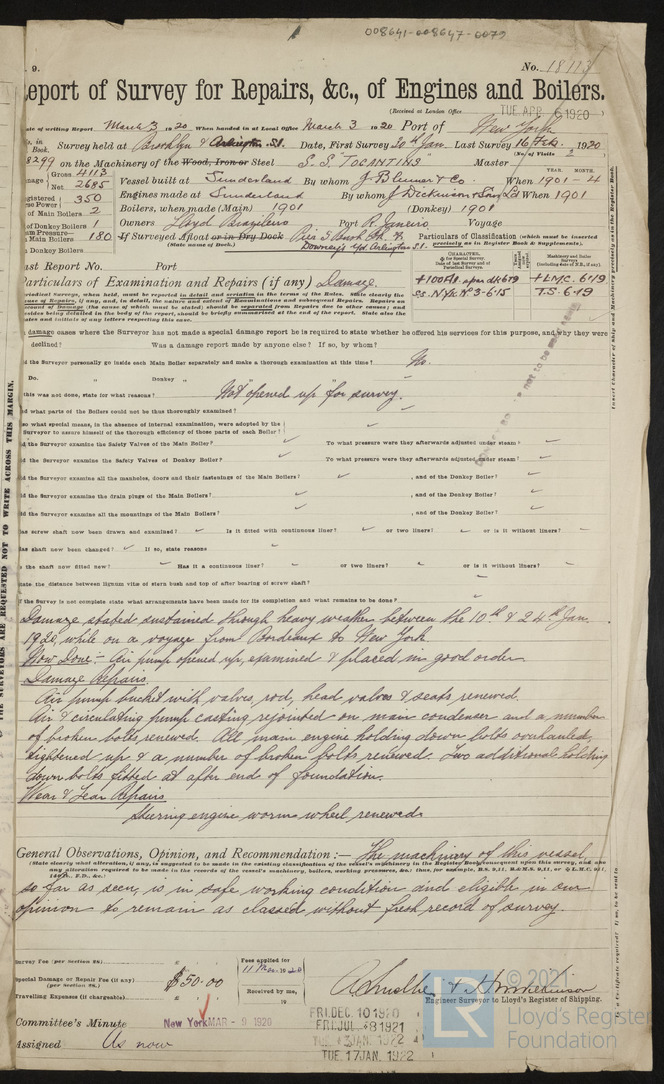 008641-008647-0079
. 9.
No. 18113
eport of Survey for Repairs, &c., of Engines and Boilers.
(Received at London Office TUE. APR. 6 1920)
ate of writing Report March 3 1920 When handed in at Local Office March 3 1920 Port of New York
No. in Book. Survey held at Brooklyn & Arlington S.I. Date, First Survey 20th Jan. Last Survey 16 Feb. 1920
(No. of Visits 3
8299 on the Machinery of the Wood, Iron or Steel S.S. "TOCANTINS" Master
Gross 4113
Net 2685
Vessel built at Sunderland By whom J. Blumer & Co. When 1901-4
YEAR. MONTH.
Engines made at Sunderland By whom J. Dickinson & Sons Ld When 1901
350
of Main Boilers 2
Boilers, when made (Main) 1901 (Donkey) 1901
of Donkey Boilers 1
Owners Lloyd Brazileiro Port R. Janeiro Voyage
Main Boilers 180
If Surveyed Afloat or in Dry Dock Pier 5 Bush
(State name of Dock.) Downey's yd. Arlington S.I.
Donkey Boilers
Particulars of Classification (which must be inserted precisely as in Register Book & Supplements).
ast Report No. Port
articulars of Examination and Repairs (if any) Damage
+LMC. 6-19
SS. N.Yk. No 3-6-15
T.S. 6-19
damage cases where the Surveyor has not made a special damage report he is required to state whether he offered his services for this purpose, and why they were
declined? Was a damage report made by anyone else? If so, by whom?
d the Surveyor personally go inside each Main Boiler separately and make a thorough examination at this time? No.
Do. " Donkey "
this was not done, state for what reasons? Not opened up for survey.
d what parts of the Boilers could not be thus thoroughly examined?
so what special means, in the absence of internal examination, were adopted by the
Surveyor to assure himself of the thorough efficiency of those parts of each Boiler?
d the Surveyor examine the Safety Valves of the Main Boiler? To what pressure were they afterwards adjusted under steam?
d the Surveyor examine the Safety Valves of Donkey Boiler? To what pressure were they afterwards adjusted under steam?
d the Surveyor examine all the manholes, doors and their fastenings of the Main Boilers? , and of the Donkey Boiler?
d the Surveyor examine the drain plugs of the Main Boilers? , and of the Donkey Boiler?
d the Surveyor examine all the mountings of the Main Boilers? , and of the Donkey Boiler?
as screw shaft now been drawn and examined? Is it fitted with continuous liner? or two liners? or is it without liners?
as shaft now been changed? If so, state reasons
s the shaft now fitted new? Has it a continuous liner? or two liners? or is it without liners?
tate the distance between lignum vitæ of stern bush and top of after bearing of screw shaft?
f the Survey is not complete state what arrangements have been made for its completion and what remains to be done?
Damage stated sustained through heavy weather between the 10th & 24th Jan.
1920, while on a voyage from Bordeaux to New York
Now Done:- Air pump opened up, examined & placed in good order.
Damage Repairs.
Air pump bucket with valves, rod, head valves & seats renewed.
Air & circulating pump casting rejointed on main condenser and a number
of broken bolts renewed. All main engine holding down bolts overhauled,
tightened up & a number of broken bolts renewed. Two additional holding
down bolts fitted at after end of foundation.
Wear & Tear Repairs.
Steering engine worm wheel renewed.
General Observations, Opinion, and Recommendation:— The machinery of this vessel,
(State clearly what alteration, if any, is suggested to be made in the existing classification of the vessel's machinery in the Register Book consequent upon this survey, and any
alteration required to be made in the records of the vessel's machinery, boilers, working pressures, &c.; thus, for example, B.S. 9,11, B.&M.S. 9,11, or L.M.C. 9,11,
so far as seen, is in safe working condition and eligible in our
opinion to remain as classed without fresh record of survey.
Survey Fee (per Section 28) £ : :
Fees applied for
11 Mar. 1920
Special Damage or Repair Fee (if any) (per Section 28.) $50.00
Received by me,
19
Travelling Expenses (if chargeable) £ : :
Engineer Surveyor to Lloyd's Register of Shipping.
Committee's Minute New York MAR - 9 1920
Assigned As now
FRI. DEC. 10 1920
FRI. JUL. 8 1921
TUE. 17 JAN. 1922
THE SURVEYORS ARE REQUESTED NOT TO WRITE ACROSS THIS MARGIN.
© 2021
LR
Lloyd's Register
Foundation